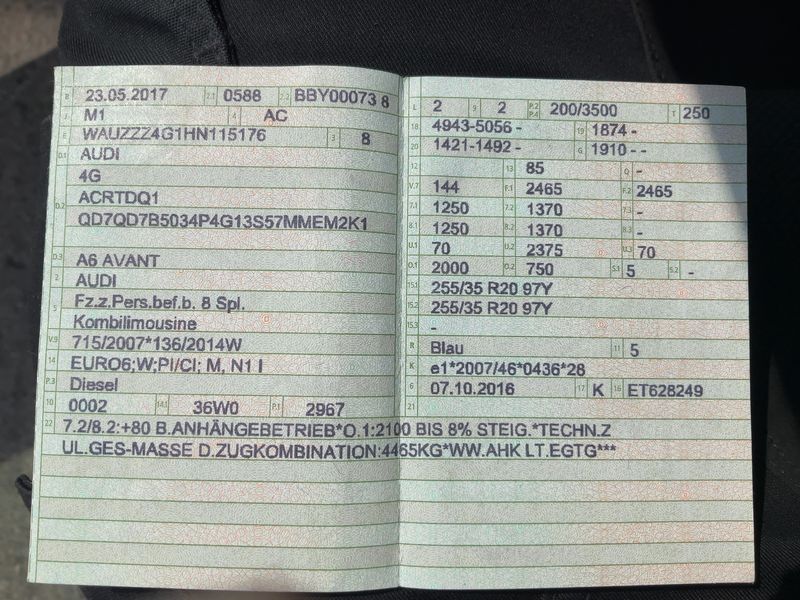 B 23.05.2017 2.1 0588 2.2 BBY00073 8
J M1 4 AC
E WAUZZZ4G1HN115176 3 8
D.1 AUDI
4G
D.2 ACRTDQ1
QD7QD7B5034P4G13S57MMEM2K1
D.3 A6 AVANT
2 AUDI
5 Fz.z.Pers.bef.b. 8 Spl.
Kombilimousine
V.9 715/2007*136/2014W
14 EURO6;W;PI/CI; M, N1 I
P.3 Diesel
10 0002 14.1 36W0 P.1 2967
L 2 9 2 P.2 P.4 200/3500 T 250
18 4943-5056 - 19 1874 -
20 1421-1492 - G 1910 - -
12 13 85 Q -
V.7 144 F.1 2465 F.2 2465
7.1 1250 7.2 1370 7.3 -
8.1 1250 8.2 1370 8.3 -
U.1 70 U.2 2375 U.3 70
O.1 2000 O.2 750 S.1 5 S.2 -
15.1 255/35 R20 97Y
15.2 255/35 R20 97Y
15.3 -
R Blau 11 5
K e1*2007/46*0436*28
6 07.10.2016 17 K 16 ET628249
21
22 7.2/8.2:+80 B.ANHÄNGEBETRIEB*O.1:2100 BIS 8% STEIG.*TECHN.Z
UL.GES-MASSE D.ZUGKOMBINATION:4465KG*WW.AHK LT.EGTG***